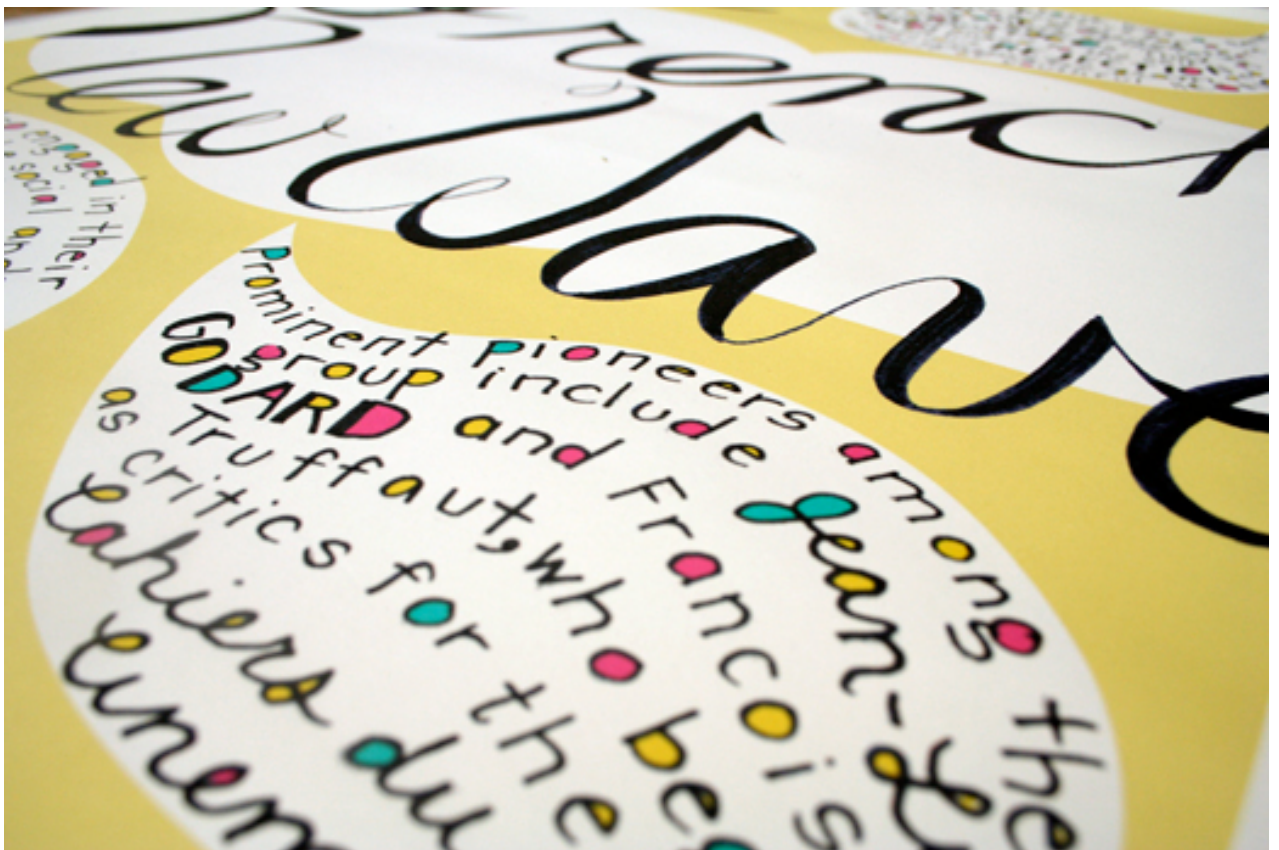 French
New Wave
engaged in their
social and
Prominent pioneers among the
group include Jean-Lu
GODARD and Francois
Truffaut, who be
as critics for the
Cahiers du
cinem